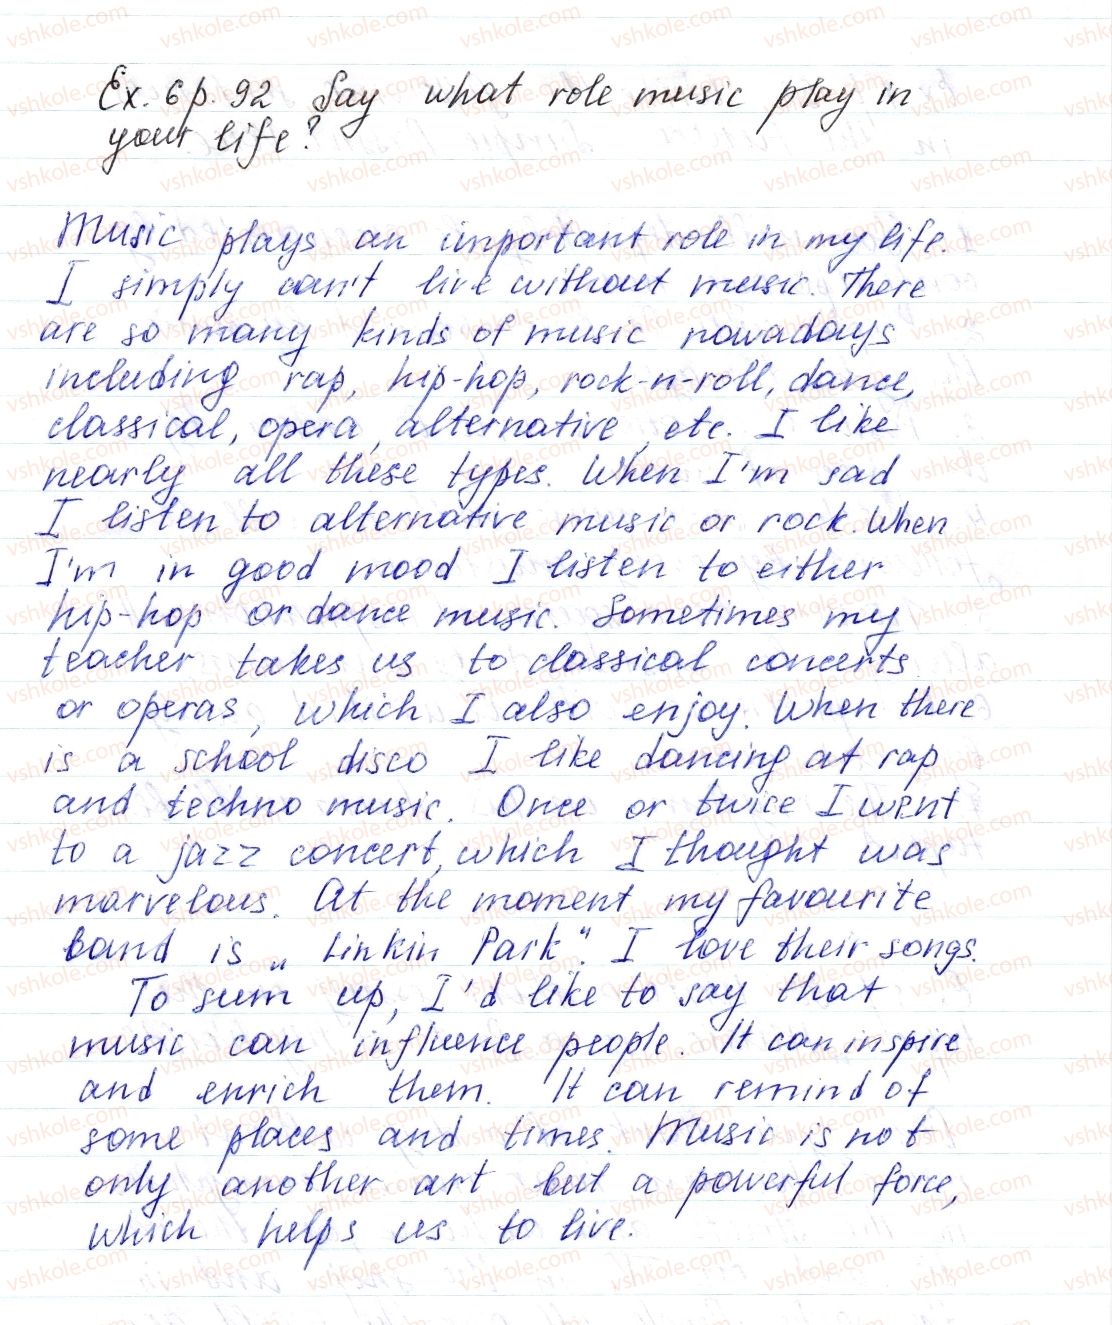 Ex. 6 p. 92 Say what role music play in
your life?
Music plays an important role in my life.
I simply can't live without music. There
are so many kinds of music nowadays
including rap, hip-hop, rock-n-roll, dance,
classical, opera, alternative, etc. I like
nearly all these types. When I'm sad
I listen to alternative music or rock. When
I'm in good mood I listen to either
hip-hop or dance music. Sometimes my
teacher takes us to classical concerts
or operas, which I also enjoy. When there
is a school disco I like dancing at rap
and techno music. Once or twice I went
to a jazz concert, which I thought was
marvelous. At the moment my favourite
band is „Linkin Park". I love their songs.
To sum up, I'd like to say that
music can influence people. It can inspire
and enrich them. It can remind of
some places and times. Music is not
only another art but a powerful force,
which helps us to live.